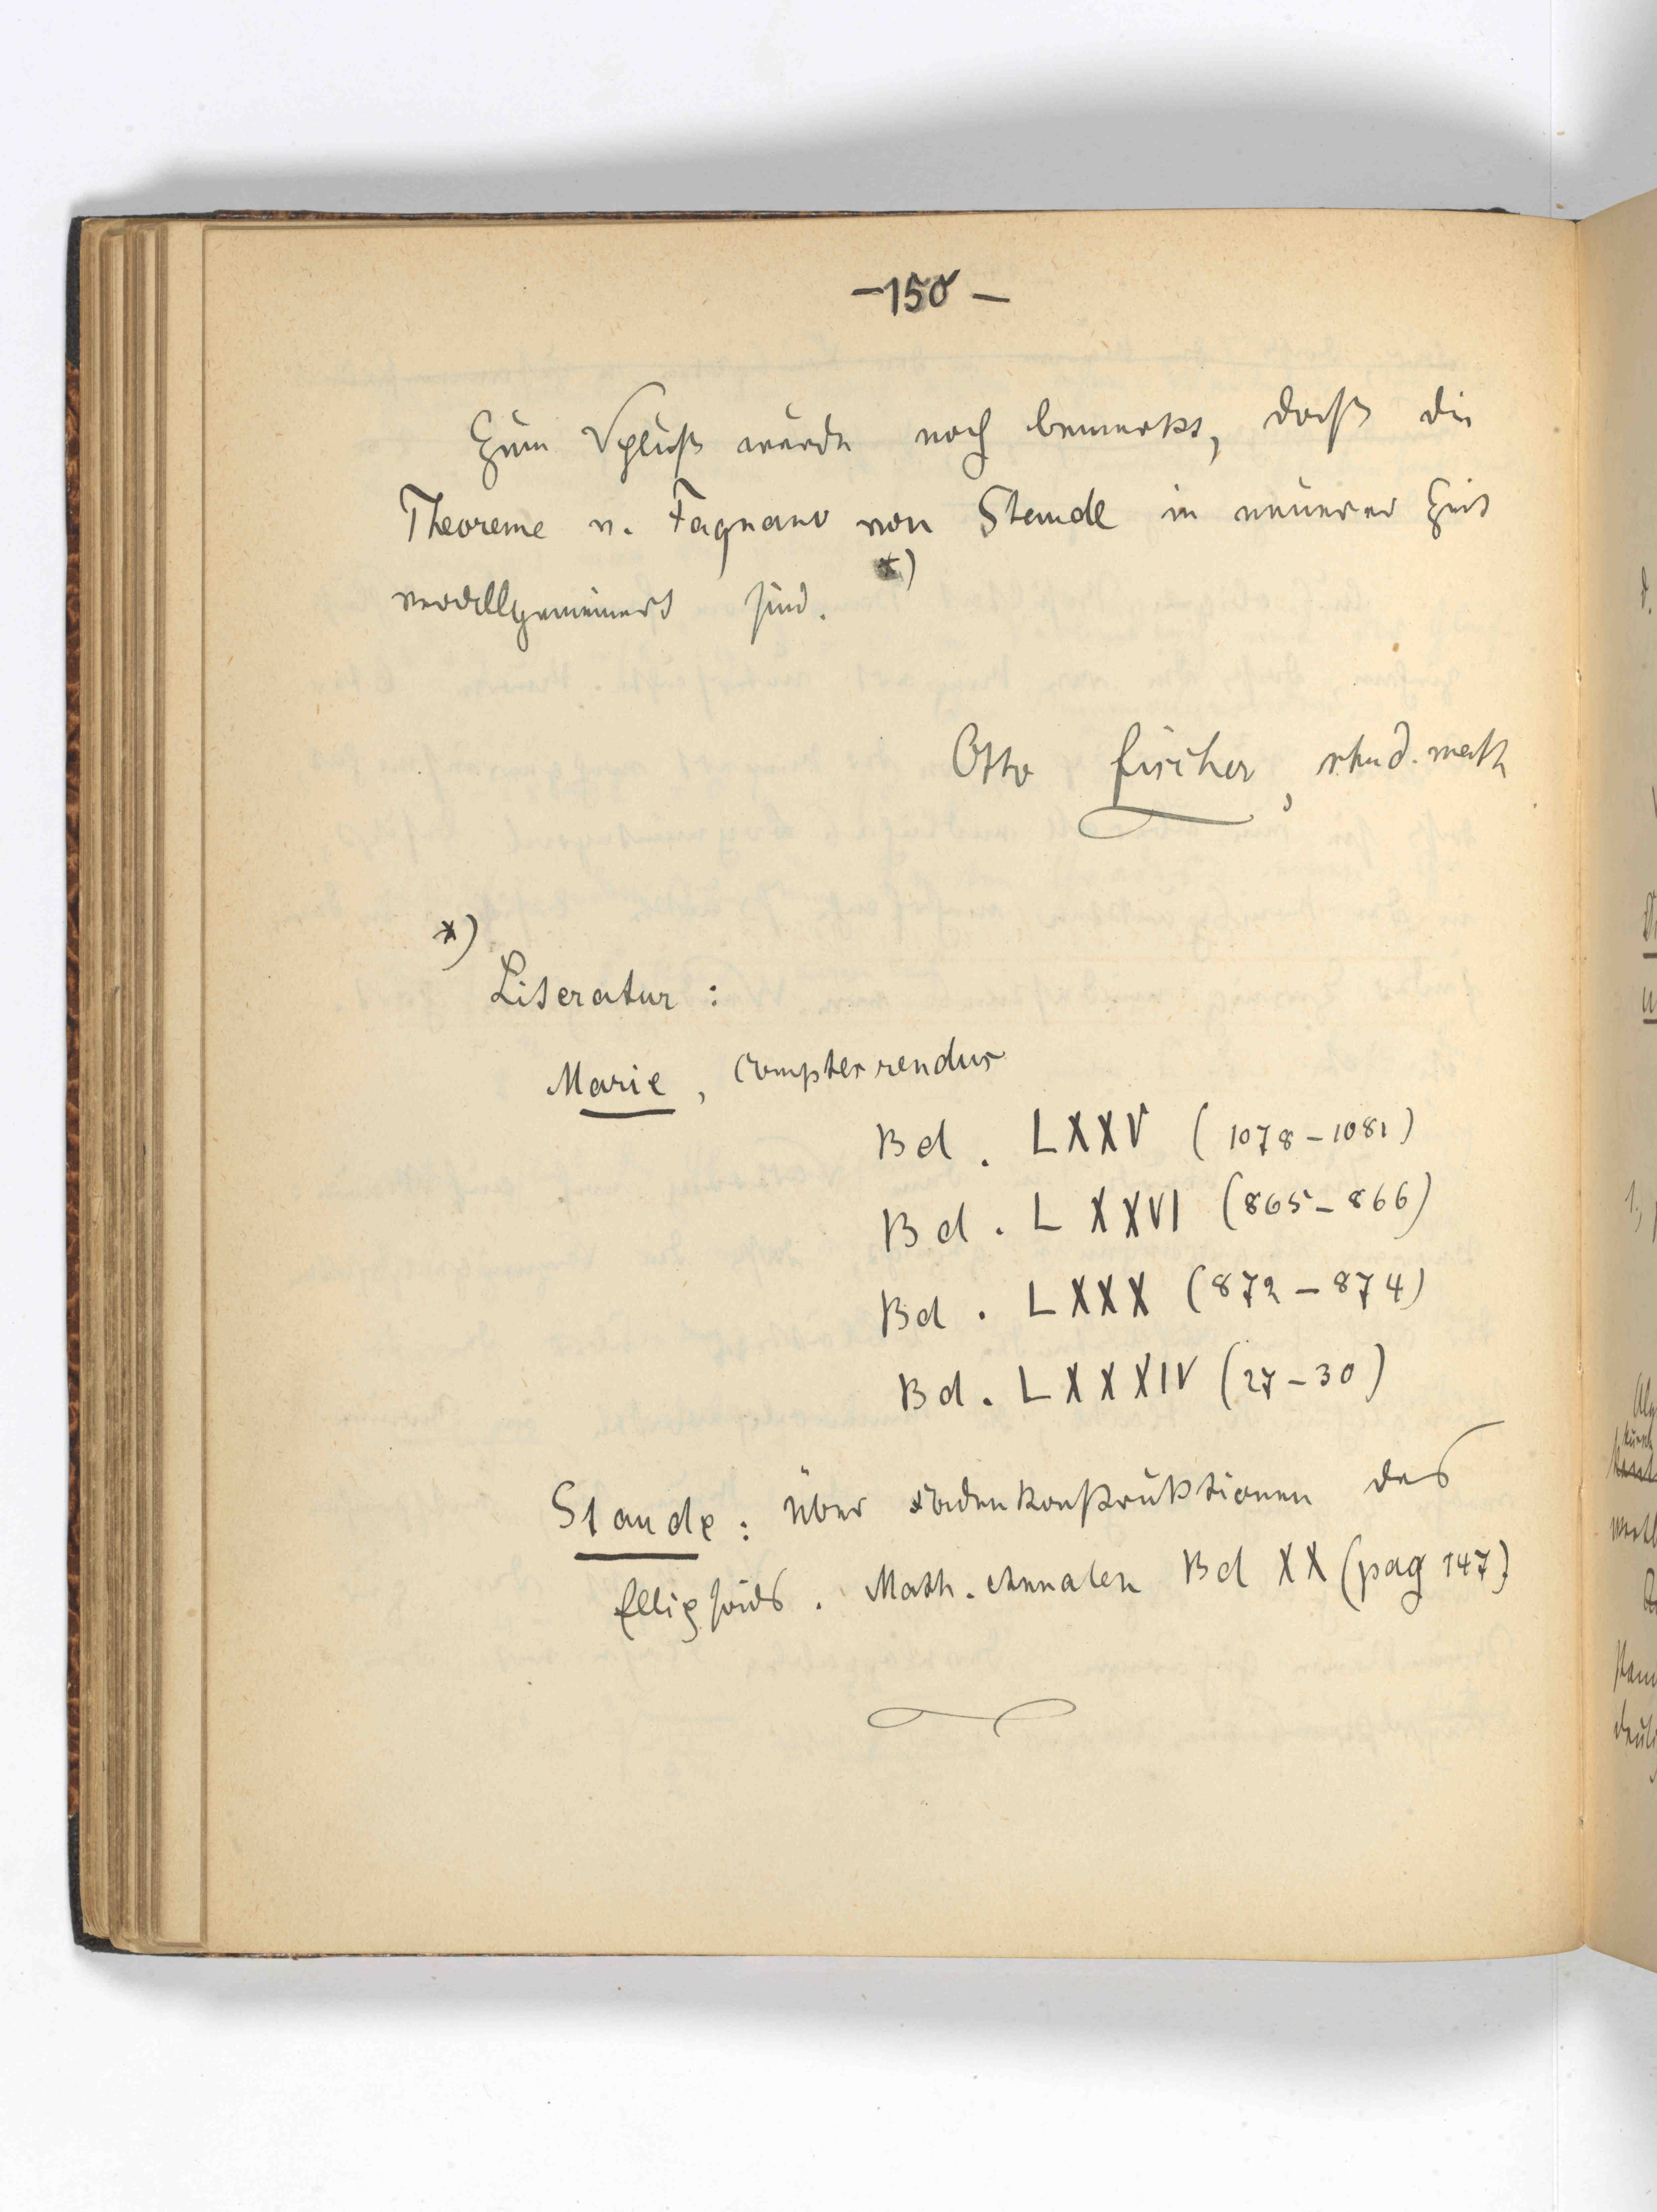 -150-
Zum Schluß wurde noch bemerkt, daß die
Theoreme v. Fagnano von Staude in neuerer Zeit
verallgemeinert sind. *)
Otto Fischer, stud. math
*)
Literatur:
Marie, Comptes rendus
Bd. LXXV (1078-1081)
Bd. LXXVI (865-866)
Bd. LXXX (872-874)
Bd. LXXXIV (27-30)
Staude: Über Fadenkonstruktionen des
Ellipsoids. Math. Annalen Bd XX (pag 147)